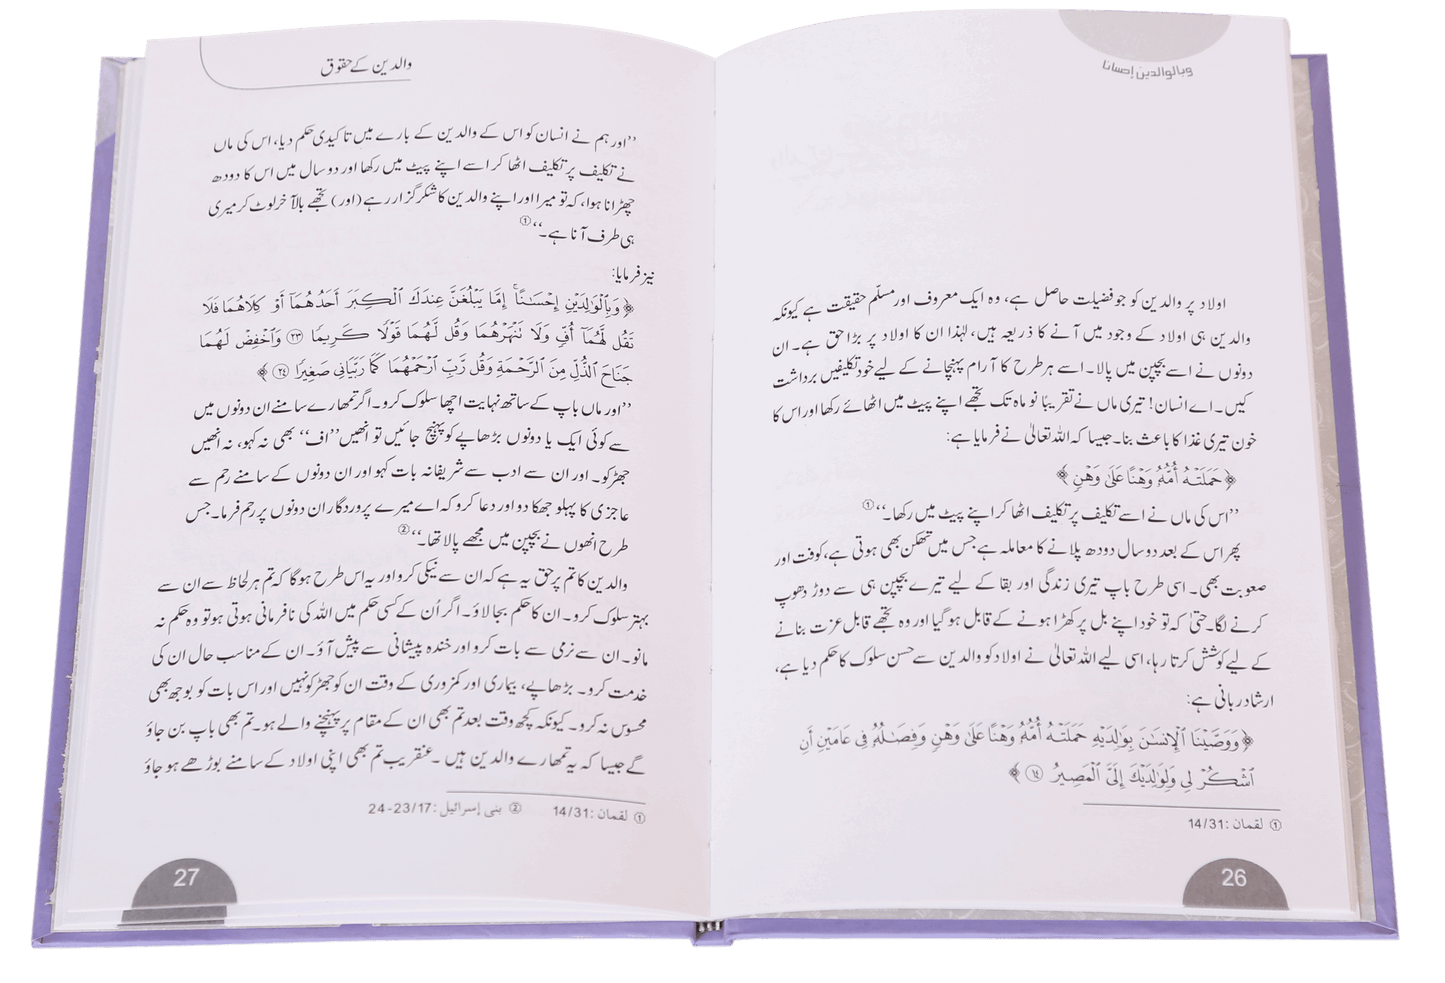 وبالوالدين إحسانا
اولاد پر والدین کو جو فضیلت حاصل ہے، وہ ایک معروف اور مسلّم حقیقت ہے کیونکہ
والدین ہی اولاد کے وجود میں آنے کا ذریعہ ہیں، لہٰذا ان کا اولاد پر بڑا حق ہے۔ ان
دونوں نے اسے بچپن میں پالا۔ اسے ہر طرح کا آرام پہنچانے کے لیے خود تکلیفیں برداشت
کیں۔ اے انسان! تیری ماں نے تقریبًا نو ماہ تک تجھے اپنے پیٹ میں اٹھائے رکھا اور اس کا
خون تیری غذا کا باعث بنا۔ جیسا کہ اللہ تعالیٰ نے فرمایا ہے:
﴿حَمَلَتْهُ أُمُّهُۥ وَهْنًا عَلَىٰ وَهْنٍ﴾
’’اس کی ماں نے اسے تکلیف پر تکلیف اٹھا کر اپنے پیٹ میں رکھا۔‘‘①
پھر اس کے بعد دو سال دودھ پلانے کا معاملہ ہے جس میں تھکن بھی ہوتی ہے، کوفت اور
صعوبت بھی۔ اسی طرح باپ تیری زندگی اور بقا کے لیے تیرے بچپن ہی سے دوڑ دھوپ
کرنے لگا۔ حتیٰ کہ تو خود اپنے بل پر کھڑا ہونے کے قابل ہو گیا اور وہ تجھے قابل عزت بنانے
کے لیے کوشش کرتا رہا، اسی لیے اللہ تعالیٰ نے اولاد کو والدین سے حسن سلوک کا حکم دیا ہے،
ارشاد ربانی ہے:
﴿وَوَصَّيْنَا ٱلْإِنسَٰنَ بِوَٰلِدَيْهِ حَمَلَتْهُ أُمُّهُۥ وَهْنًا عَلَىٰ وَهْنٍ وَفِصَٰلُهُۥ فِى عَامَيْنِ أَنِ
ٱشْكُرْ لِى وَلِوَٰلِدَيْكَ إِلَىَّ ٱلْمَصِيرُ ⑭﴾
① لقمان :14/31
26
والدین کے حقوق
’’اور ہم نے انسان کو اس کے والدین کے بارے میں تاکیدی حکم دیا، اس کی ماں
نے تکلیف پر تکلیف اٹھا کر اسے اپنے پیٹ میں رکھا اور دو سال میں اس کا دودھ
چھڑانا ہوا، کہ تو میرا اور اپنے والدین کا شکر گزار رہے (اور) تجھے بالآخر لوٹ کر میری
ہی طرف آنا ہے۔‘‘①
نیز فرمایا:
﴿وَبِٱلْوَٰلِدَيْنِ إِحْسَٰنًا ۚ إِمَّا يَبْلُغَنَّ عِندَكَ ٱلْكِبَرَ أَحَدُهُمَآ أَوْ كِلَاهُمَا فَلَا
تَقُل لَّهُمَآ أُفٍّ وَلَا نَنْهَرْهُمَا وَقُل لَّهُمَا قَوْلًا كَرِيمًا ㉓ وَٱخْفِضْ لَهُمَا
جَنَاحَ ٱلذُّلِّ مِنَ ٱلرَّحْمَةِ وَقُل رَّبِّ ٱرْحَمْهُمَا كَمَا رَبَّيَانِى صَغِيرًا ㉔﴾
’’اور ماں باپ کے ساتھ نہایت اچھا سلوک کرو۔ اگر تمھارے سامنے ان دونوں میں
سے کوئی ایک یا دونوں بڑھاپے کو پہنچ جائیں تو انھیں ’’اف‘‘ بھی نہ کہو، نہ انھیں
جھڑکو۔ اور ان سے ادب سے شریفانہ بات کہو اور ان دونوں کے سامنے رحم سے
عاجزی کا پہلو جھکا دو اور دعا کرو کہ اے میرے پروردگار ان دونوں پر رحم فرما۔ جس
طرح انھوں نے بچپن میں مجھے پالا تھا۔‘‘②
والدین کا تم پر حق یہ ہے کہ ان سے نیکی کرو اور یہ اس طرح ہوگا کہ تم ہر لحاظ سے ان سے
بہتر سلوک کرو۔ ان کا حکم بجا لاؤ۔ اگر اُن کے کسی حکم میں اللہ کی نافرمانی ہوتی ہو تو وہ حکم نہ
مانو۔ ان سے نرمی سے بات کرو اور خندہ پیشانی سے پیش آؤ۔ ان کے مناسب حال ان کی
خدمت کرو۔ بڑھاپے، بیماری اور کمزوری کے وقت ان کو جھڑکو نہیں اور اس بات کو بوجھ بھی
محسوس نہ کرو۔ کیونکہ کچھ وقت بعد تم بھی ان کے مقام پر پہنچنے والے ہو۔ تم بھی باپ بن جاؤ
گے جیسا کہ یہ تمھارے والدین ہیں۔ عنقریب تم بھی اپنی اولاد کے سامنے بوڑھے ہو جاؤ
① لقمان :14/31 ② بنی إسرائیل :24-23/17
27